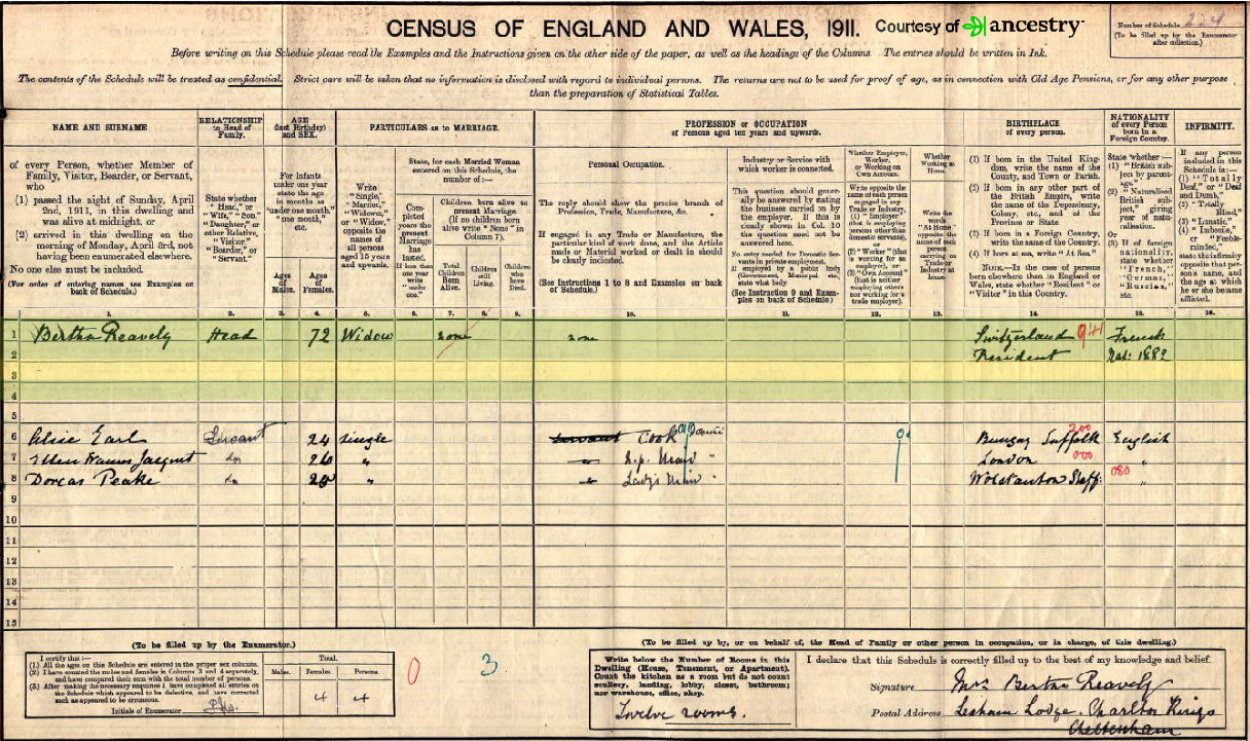 CENSUS OF ENGLAND AND WALES, 1911. Courtesy of ancestry
Number of Schedule 224
(To be filled up by the Enumerator
after collection.)
Before writing on this Schedule please read the Examples and the Instructions given on the other side of the paper, as well as the headings of the Columns. The entries should be written in Ink.
The contents of the Schedule will be treated as confidential. Strict care will be taken that no information is disclosed with regard to individual persons. The returns are not to be used for proof of age, as in connection with Old Age Pensions, or for any other purpose
than the preparation of Statistical Tables.
NAME AND SURNAME
RELATIONSHIP
to Head of
Family.
AGE
(last Birthday)
and SEX.
PARTICULARS as to MARRIAGE.
PROFESSION or OCCUPATION
of Persons aged ten years and upwards.
BIRTHPLACE
of every person.
NATIONALITY
of every Person
born in a
Foreign Country.
INFIRMITY.
of every Person, whether Member of
Family, Visitor, Boarder, or Servant,
who
(1) passed the night of Sunday, April
2nd, 1911, in this dwelling and
was alive at midnight, or
(2) arrived in this dwelling on the
morning of Monday, April 3rd, not
having been enumerated elsewhere.
No one else must be included.
(For order of entering names see Examples on
back of Schedule.)
State whether
"Head," or
"Wife," "Son,"
"Daughter," or
other Relative,
"Visitor,"
"Boarder," or
"Servant."
For Infants
under one year
state the age
in months as
"under one month,"
"one month,"
etc.
Ages
of
Males.
Ages
of
Females.
Write
"Single,"
"Married,"
"Widower,"
or "Widow,"
opposite the
names of
all persons
aged 15 years
and upwards.
State, for each Married Woman
entered on this Schedule, the
number of:—
Completed
years the
present
Marriage
has
lasted.
If less than
one year
write
"under
one."
Children born alive to
present Marriage.
(If no children born
alive write "None" in
Column 7).
Total
Children
Born
Alive.
Children
still
Living.
Children
who
have
Died.
Personal Occupation.
The reply should show the precise branch of
Profession, Trade, Manufacture, &c.
If engaged in any Trade or Manufacture, the
particular kind of work done, and the Article
made or Material worked or dealt in should
be clearly indicated.
(See Instructions 1 to 8 and Examples on back
of Schedule.)
Industry or Service with
which worker is connected.
This question should generally
be answered by stating
the business carried on by
the employer. If this is
clearly shown in Col. 10
the question need not be
answered here.
No entry needed for Domestic Servants
in private employment.
If employed by a public body
(Government, Municipal, etc.)
state what body
(See Instruction 9 and Examples
on back of Schedule.)
Whether Employer,
Worker,
or Working on
Own Account.
Write opposite the
name of each person
engaged in any
Trade or Industry,
(1) "Employer"
(that is employing
persons other than
domestic servants),
or
(2) "Worker" (that
is working for an
employer), or
(3) "Own Account"
(that is neither
employing others
nor working for a
trade employer).
Whether
Working at
Home.
Write the
words
"At Home"
opposite the
name of each
person
carrying on
Trade or
Industry at
home.
(1) If born in the United Kingdom,
write the name of the
County, and Town or Parish.
(2) If born in any other part of
the British Empire, write
the name of the Dependency,
Colony, etc., and of the
Province or State
(3) If born in a Foreign Country,
write the name of the Country.
(4) If born at sea, write "At Sea."
NOTE.—In the case of persons
born elsewhere than in England or
Wales, state whether "Resident" or
"Visitor" in this Country.
State whether:—
(1) "British subject
by parentage."
(2) "Naturalised
British
subject," giving
year of naturalisation.
Or
(3) If of foreign
nationality,
state whether
"French,"
"German,"
"Russian,"
etc.
If any person
included in this
Schedule is:—
(1) "Totally
Deaf," or "Deaf
and Dumb,"
(2) "Totally
Blind,"
(3) "Lunatic,"
(4) "Imbecile,"
or "Feeble-
minded,"
state the infirmity
opposite that person's
name, and
the age at which
he or she became
afflicted.
1. 2. 3. 4. 5. 6. 7. 8. 9. 10. 11. 12. 13. 14. 15. 16.
1 Bertha Reavely Head 72 Widow none none Switzerland 941 French
2 Resident Nat: 1882
3
4
5
6 Alice Earl Servant 24 Single servant Cook Bungay Suffolk 200 English
7 Ellen Frances Jacquest do 26 " H.p. Maid " London 000 "
8 Dorcas Peake do " Lady's Maid " Wolstanton Staff: 080 "
9
10
11
12
13
14
15
(To be filled up by the Enumerator.)
I certify that:—
(1) All the ages on this Schedule are entered in the proper sex columns.
(2) I have counted the males and females in Columns 3 and 4 separately,
and have compared their sum with the total number of persons.
(3) After making the necessary enquiries I have completed all entries on
the Schedule which appeared to be defective, and have corrected
such as appeared to be erroneous.
Initials of Enumerator
Total.
Males. Females. Persons.
4 4
0 3
(To be filled up by, or on behalf of, the Head of Family or other person in occupation, or in charge, of this dwelling.)
Write below the Number of Rooms in this
Dwelling (House, Tenement, or Apartment).
Count the kitchen as a room but do not count
scullery, landing, lobby, closet, bathroom;
nor warehouse, office, shop.
Twelve rooms.
I declare that this Schedule is correctly filled up to the best of my knowledge and belief.
Signature Mrs Bertha Reavely
Postal Address Lexham Lodge, Charlton Kings
Cheltenham